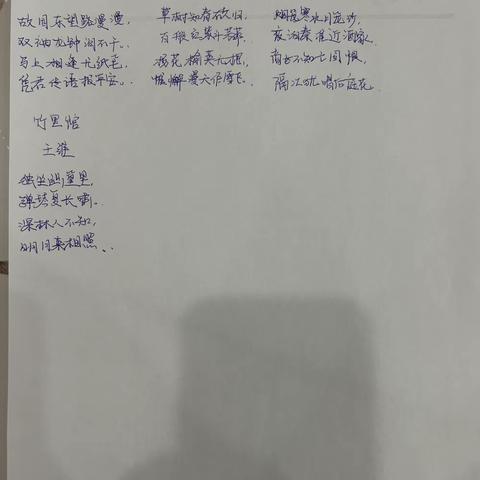 故园东望路漫漫,
双袖龙钟泪不干。
马上相逢无纸笔,
凭君传语报平安。
草树知春不久归,
百般红紫斗芳菲。
杨花榆荚无才思,
惟解漫天作雪飞。
烟笼寒水月笼沙,
夜泊秦淮近酒家。
商女不知亡国恨,
隔江犹唱后庭花。
竹里馆
王维
独坐幽篁里,
弹琴复长啸。
深林人不知,
明月来相照。